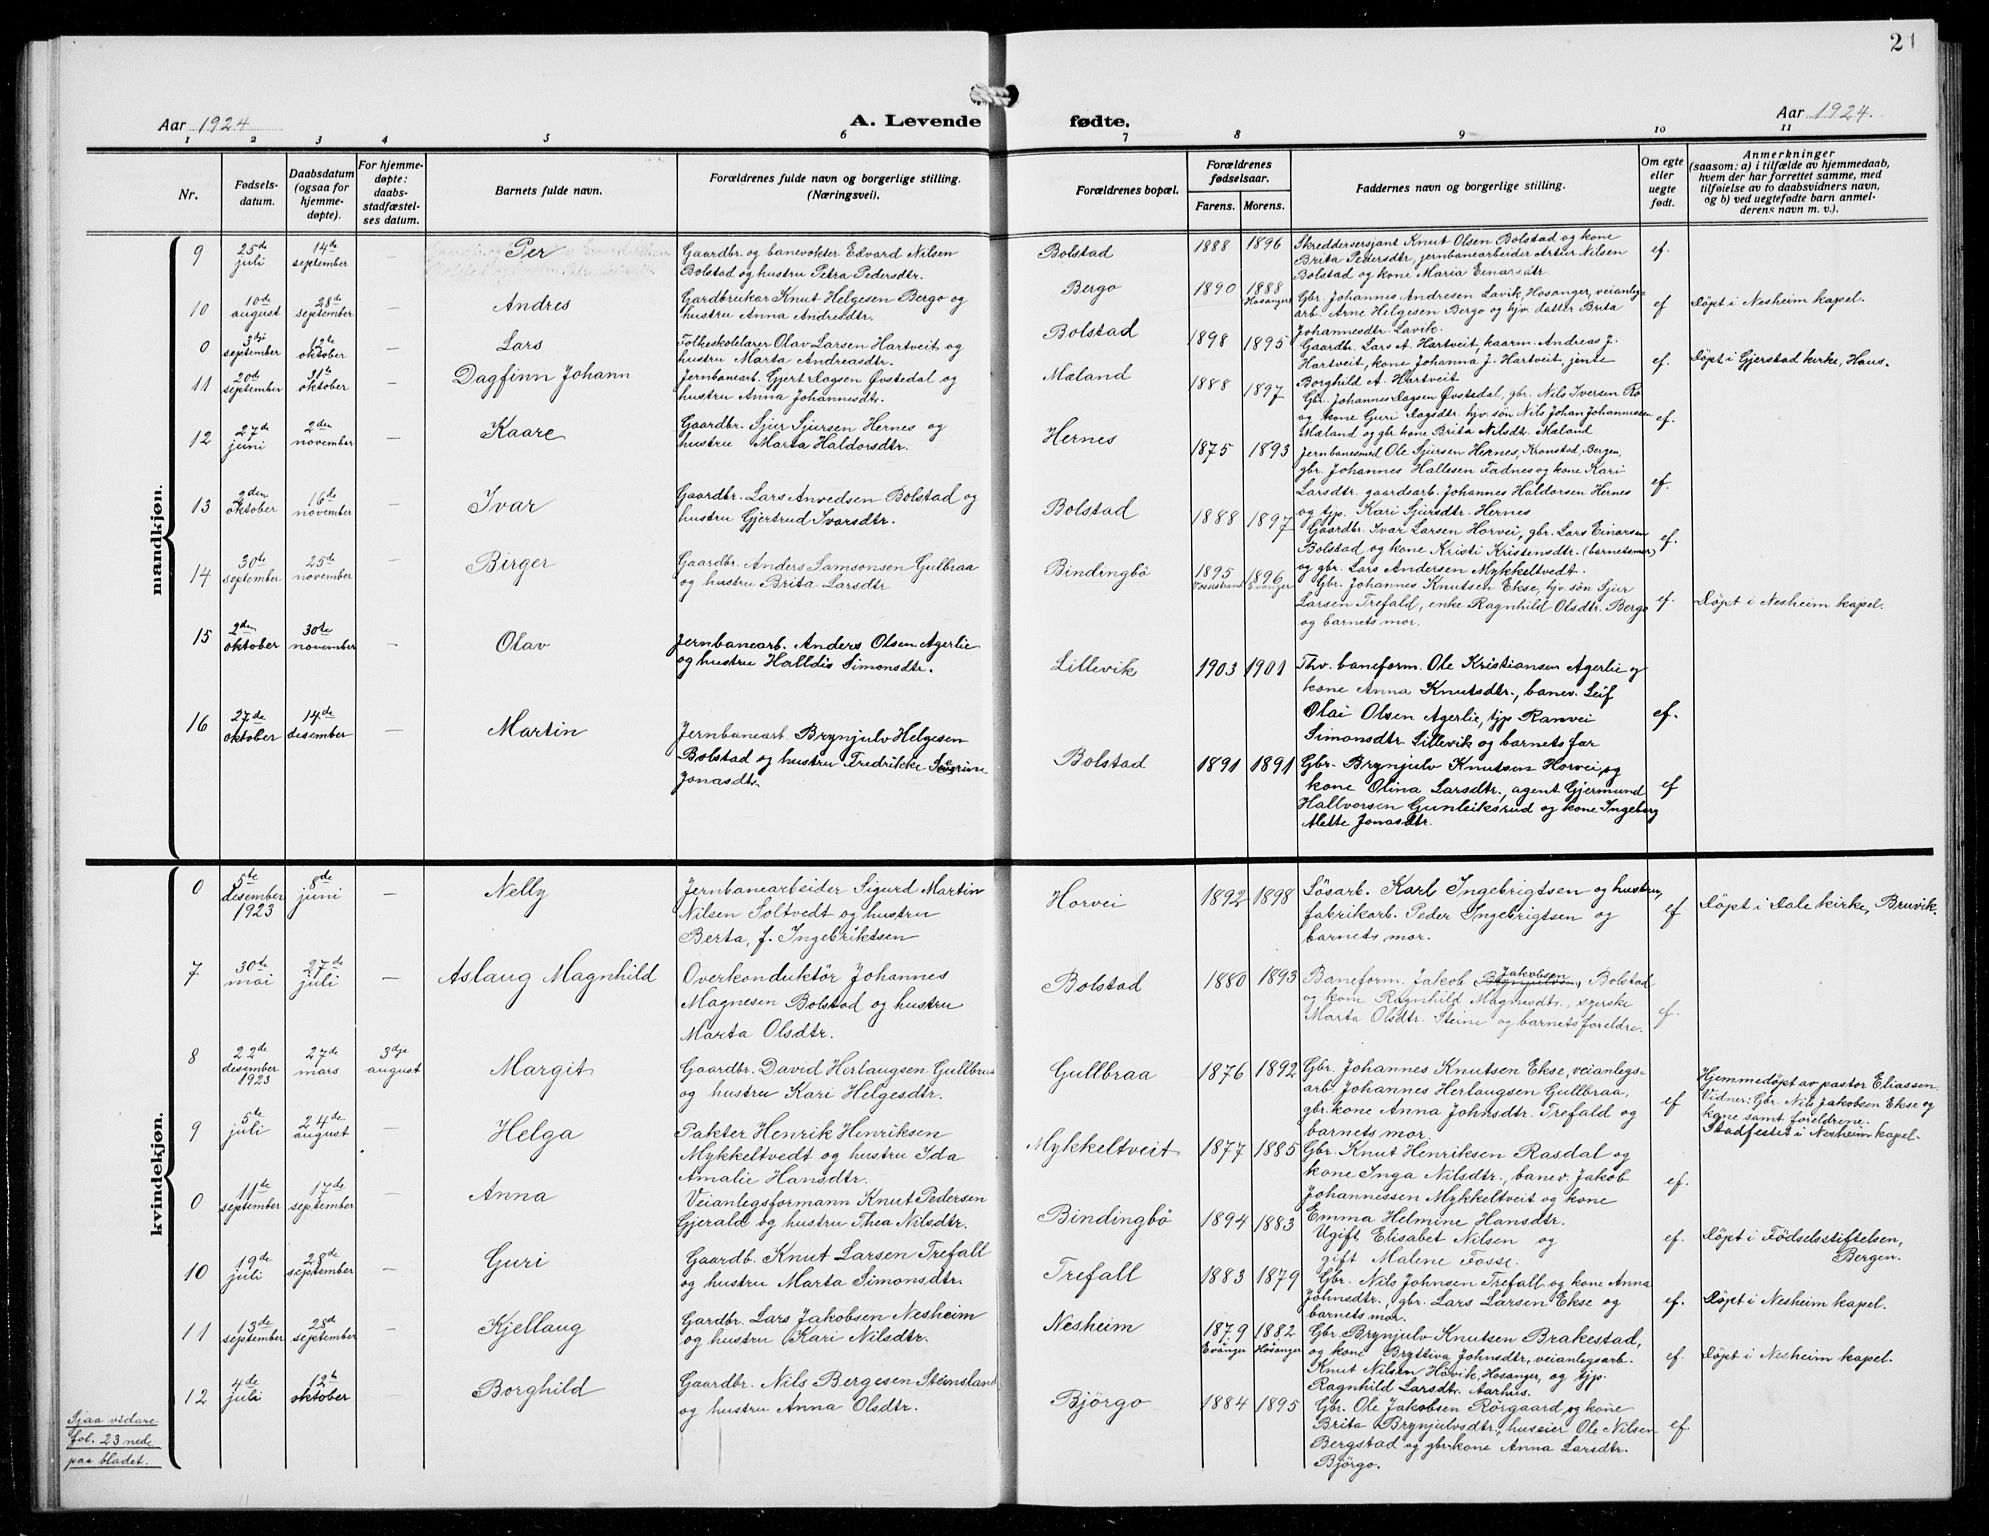 21
Aar 1924
A. Levende fødte.
Aar 1924.
1 2 3 4 5 6 7 8 9 10 11
Nr.
Fødsels-
datum.
Daabsdatum
(ogsaa for
hjemme-
døpte).
For hjemme-
døpte:
daabs-
stadfæstel-
ses datum.
Barnets fulde navn.
Forældrenes fulde navn og borgerlige stilling.
(Næringsvei).
Forældrenes bopæl.
Forældrenes
fødselsaar.
Farens. Morens.
Faddernes navn og borgerlige stilling.
Om egte
eller
uegte
født.
Anmerkninger
(saasom: a) i tilfælde av hjemmedaab,
hvem der har forrettet samme, med
tilføielse av to daabsvidners navn,
og b) ved uegtefødte barn anmel-
derens navn m. v.).
mandkjøn.
9
25de
juli
14de
september
—
Per
Gaardbr. og banevokter Edvard Nilsen
Bolstad og hustru Petra Pedersdtr.
Bolstad
1888 1896
Skreddersersjant Knut Olsen Bolstad og kone
Brita Pedersdtr, jernbanearbeider Artur Nilsen
Bolstad og kone Maria Einarsdtr.
ef.
10
10de
august
28de
september
—
Andres
Gardbrukar Knut Helgesen Bergo og
hustru Anna Andresdtr.
Bergo
1890 1888
Hosanger
Gbr. Johannes Andresen Lavik, Hosanger, veianleg-
arb. Arne Helgesen Bergo og hjv. datter Brita
Johannesdtr. Lavik.
ef
Døpt i Nesheim kapel.
0
3dje
september
12te
oktober
—
Lars
Folkeskolelærer Olav Larsen Hartveit og
hustru Marta Andreasdtr.
Bolstad
1898 1895
Gaardbr. Lars A. Hartveit, kaarm. Andreas J.
Hartveit, kone Johanna J. Hartveit, jente
Borghild A. Hartveit
ef.
Døpt i Gjerstad kirke, Haus.
11
20de
september
31te
oktober
—
Dagfinn Johann
Jernbanearb. Gjert Dagsen Øvstedal og
hustru Anna Johannesdtr.
Mæland
1888 1897
Gbr. Johannes Dagsen Øvstedal, gbr. Nils Iversen Rö
og kone Guri Dagsdtr. hjv. søn Nils Johan Johannessen
Mæland og gbr. kone Brita Nilsdtr. Mæland
ef.
12
27de
juni
2den
november
—
Kaare
Gaardbr. Sjur Sjursen Hernes og
hustru Marta Haldorsdtr.
Hernes
1875 1893
Jernbanesmed Ole Sjursen Hernes, Kronstad, Bergen,
gbr. Johannes Hallesen Fadnes og kone Kari
Larsdtr. gaardsarb. Johannes Haldorsen Hernes
og tjp. Kari Sjursdtr. Hernes
ef.
13
2den
oktober
16de
november
—
Ivar
Gaardbr. Lars Anvedsen Bolstad og
hustru Gjertrud Ivarsdtr.
Bolstad
1888 1897
Gaardbr. Ivar Larsen Horvei, gbr. Lars Einarsen
Bolstad og kone Kristi Kristensdtr. (barnets mor)
og gbr. Lars Andersen Mykkeltvedt.
ef.
14
30te
september
25de
november
—
Birger
Gaardbr. Anders Samsonsen Gulbraa
og hustru Brita Larsdtr
Bindingbö
1895 1896
Vossestrand Evanger
Gbr. Johannes Knutsen Ekse, hjv. søn Sjur
Larsen Trefald, enke Ragnhild Olsdtr. Bergo
og barnets mor.
ef.
Døpt i Nesheim kapel.
15
2den
oktober
30te
november
—
Olav
Jernbanearb. Anders Olsen Agerlie
og hustru Halldis Simonsdtr.
Lillevik
1903 1901
Thv. baneform. Ole Kristiansen Agerlie og
kone Anna Knutsdtr., banev. Leif
Olai Olsen Agerlie, tjp Ranvei
Simonsdtr Lillevik og barnets far
ef.
16
27de
oktober
14de
desember
—
Martin
Jernbanearb. Brynjulv Helgesen
Bolstad og hustru Fredrikke Severine
Jonasdtr
Bolstad
1891 1891
Gbr. Brynjulv Knutsen Horvei, og
kone Olina Larsdtr., agent Gjermund
Hallvorsen Gunleiksrud og kone Ingeborg
Alette Jonasdtr.
ef
kvindekjøn.
0
5te
desember
1923
8de
juni
—
Nelly
Jernbanearbeider Sigurd Martin
Nilsen Soltvedt og hustru
Berta, f. Ingebriktsen
Horvei
1892 1898
Løsarb. Karl Ingebrigtsen og hustru,
fabrikarb. Peder Ingebrigtsen og
barnets mor.
ef
Døpt i Dale kirke, Bruvik.
7
30te
mai
27de
juli
—
Aslaug Magnhild
Overkonduktör Johannes
Magnesen Bolstad og hustru
Marta Olsdtr.
Bolstad
1880 1893
Baneform. Jakob Brynjulvsen, Jakobsen Bolstad
og kone Ragnhild Magnusdtr.,
Marta Olsdtr. Steine og barnets foreldre.
ef.
8
22de
desember
1923
27de
mars
3dje
august
Margit
Gaardbr. David Herlaugsen Gullbraa
og hustru Kari Helgesdtr.
Gullbraa
1876 1892
Gbr. Johannes Knutsen Ekse, veianlegs-
arb. Johannes Herlaugsen Gullbraa,
gbr.kone Anna Johnsdtr. Trefald og
barnets mor.
ef
Hjemmedöpt av pastor Eliassen.
Vidner: Gbr. Nils Jakobsen Ekse og
kone samt foreldrene.
Stadfestet i Nesheim kapel.
9
5te
juli
24de
august
—
Helga
Pakter Henrik Hinriksen
Mykkeltvedt og hustru Ida
Amalie Hansdtr.
Mykkeltveit
1877 1885
Gbr. Knut Henriksen Rasdal og
kone Inga Nilsdtr., banev. Jakob
Johannessen Mykkeltveit og kone
Emma Helmine Hansdtr.
ef.
0
11te
september
17de
september
—
Anna
Veianlegsformann Knut Pedersen
Gjerald og hustru Thea Nilsdtr.
Bindingbö
1894 1883
Ugift Elisabet Nilsen og
gift Malene Fosse.
ef.
Døpt i Födselsstiftelsen,
Bergen.
10
19de
juli
28de
september
—
Guri
Gaardb. Knut Larsen Trefall
og hustru Marta Simonsdtr.
Trefall
1883 1879
Gbr. Nils Johnsen Trefall og kone Anna
Johnsdtr., gbr. Lars Larsen Ekse og
barnets mor.
ef.
Døpt i Nesheim kapel.
11
13de
september
28de
september
—
Kjellaug
Gardbr. Lars Jakobsen Nesheim
og hustru Kari Nilsdtr.
Nesheim
1879 1882
Evanger Hosanger
Gbr. Brynjulv Knutsen Brakestad,
og kone Bryttiva Johnsdtr, veianlegsarb.
Knut Nilsen Hövik, Hosanger, og tjp.
Ragnhild Larsdtr. Aarhus.
ef.
Døpt i Nesheim kapel.
12
4de
juli
12te
oktober
—
Borghild
Gaardbr. Nils Bergesen Steinsland
og hustru Anna Olsdtr.
Björgo
1884 1895
Gbr. Ole Jakobsen Rörgaard og kone
Brita Brynjulvsdtr., huseier Ole Nilsen
Bergstad og gbr.kone Anna Larsdtr.
Björgo.
ef
Sjaa vidare
fol. 23 nede
paa bladet.